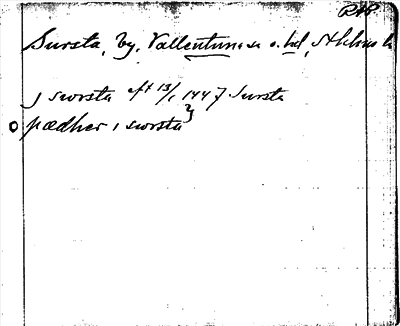 Sursta, by, Vallentuna sn o. hd, Sthlms l.
j swrsta aft 13/1 1447 Sursta
pædher i swrsta